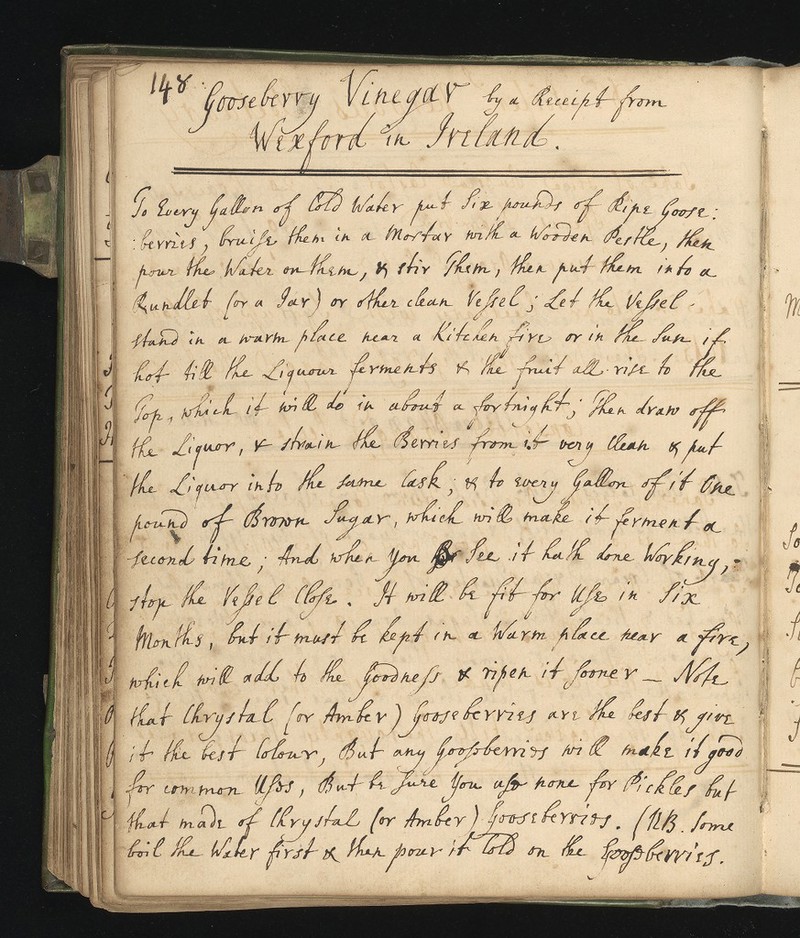 148
Gooseberry Vinegar by a Receipt from
Wexford in Ireland.
To Every Gallon of Cold Water put Six pounds of Ripe Goose:
:berries, bruise them in a Mortar with a Wooden Pestle, then
pour the Water on them, & stir Them, then put them into a
Rundlet (or a Jar) or other clean Vessel; Let the Vessel
stand in a warm place near a Kitchen fire or in the Sun if
hot till the Liquour ferments & the fruit all rise to the
Top, which it will do in about a fortnight; Then draw off
the Liquor, & strain the Berries from it very Clean & put
the Liquor into the same Cask; & to every Gallon of it One
pound of Brown Sugar, which will make it ferment a
second time; And when You See it hath done Working,
stop the Vessel Close. It will be fit for Use in Six
Months, but it must be kept in a Warm place near a fire,
which will add to the Goodness & ripen it sooner — Note
that Chrystal (or Amber) Gooseberries are the best & give
it the best Colour, But any Gooseberries will make it good
for common Uses, But be Sure You use none for Pickles but
that made of Chrystal (or Amber) Gooseberries. (NB. Some
boil the Water first & then pour it Cold on the Gooseberries.